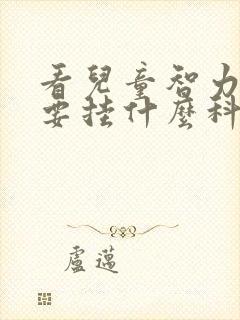 看兒童智力
要挂什麼科
盧邁